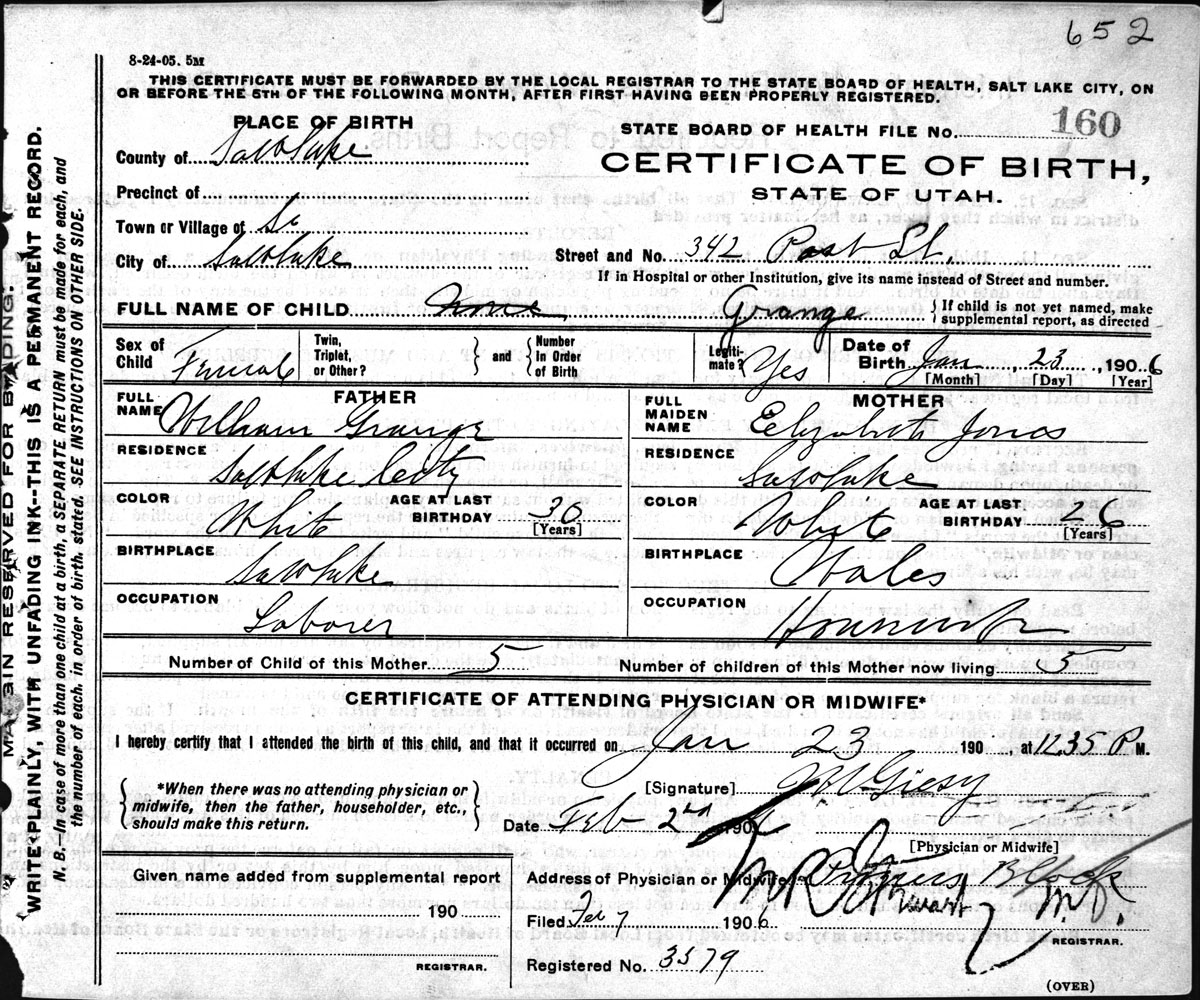 652
8-24-05. 5M
THIS CERTIFICATE MUST BE FORWARDED BY THE LOCAL REGISTRAR TO THE STATE BOARD OF HEALTH, SALT LAKE CITY, ON
OR BEFORE THE 5TH OF THE FOLLOWING MONTH, AFTER FIRST HAVING BEEN PROPERLY REGISTERED.
PLACE OF BIRTH
STATE BOARD OF HEALTH FILE No. 160
County of Salt Lake
CERTIFICATE OF BIRTH,
STATE OF UTAH.
Precinct of
Town or Village of
City of Salt Lake
Street and No. 342 St.
If in Hospital or other Institution, give its name instead of Street and number.
FULL NAME OF CHILD None Grange
If child is not yet named, make
supplemental report, as directed
Sex of Child Female
Twin, Triplet, or Other?
and
Number In Order of Birth
Legiti-mate? Yes
Date of Birth Jan, 23, 1906
[Month] [Day] [Year]
FATHER
FULL NAME William Grange
RESIDENCE Salt Lake City
COLOR White
AGE AT LAST BIRTHDAY 30
[Years]
BIRTHPLACE Salt Lake
OCCUPATION Laborer
MOTHER
FULL MAIDEN NAME Elizabeth Jones
RESIDENCE Salt Lake
COLOR White
AGE AT LAST BIRTHDAY 26
[Years]
BIRTHPLACE Wales
OCCUPATION Housewife
Number of Child of this Mother 5
Number of children of this Mother now living 5
CERTIFICATE OF ATTENDING PHYSICIAN OR MIDWIFE*
I hereby certify that I attended the birth of this child, and that it occurred on Jan 23 190 , at 11.35 P M.
*When there was no attending physician or
midwife, then the father, householder, etc.,
should make this return.
[Signature] Giesy
Date Feb 2nd 1906
[Physician or Midwife]
Given name added from supplemental report
190
REGISTRAR.
Address of Physician or Midwife Block
Filed Feb 7 1906
M.D.
REGISTRAR.
Registered No. 3579
(OVER)
MARGIN RESERVED FOR BINDING.
WRITE PLAINLY, WITH UNFADING INK--THIS IS A PERMANENT RECORD.
N. B.--In case of more than one child at a birth, a SEPARATE RETURN must be made for each, and
the number of each, in order of birth, stated. SEE INSTRUCTIONS ON OTHER SIDE.